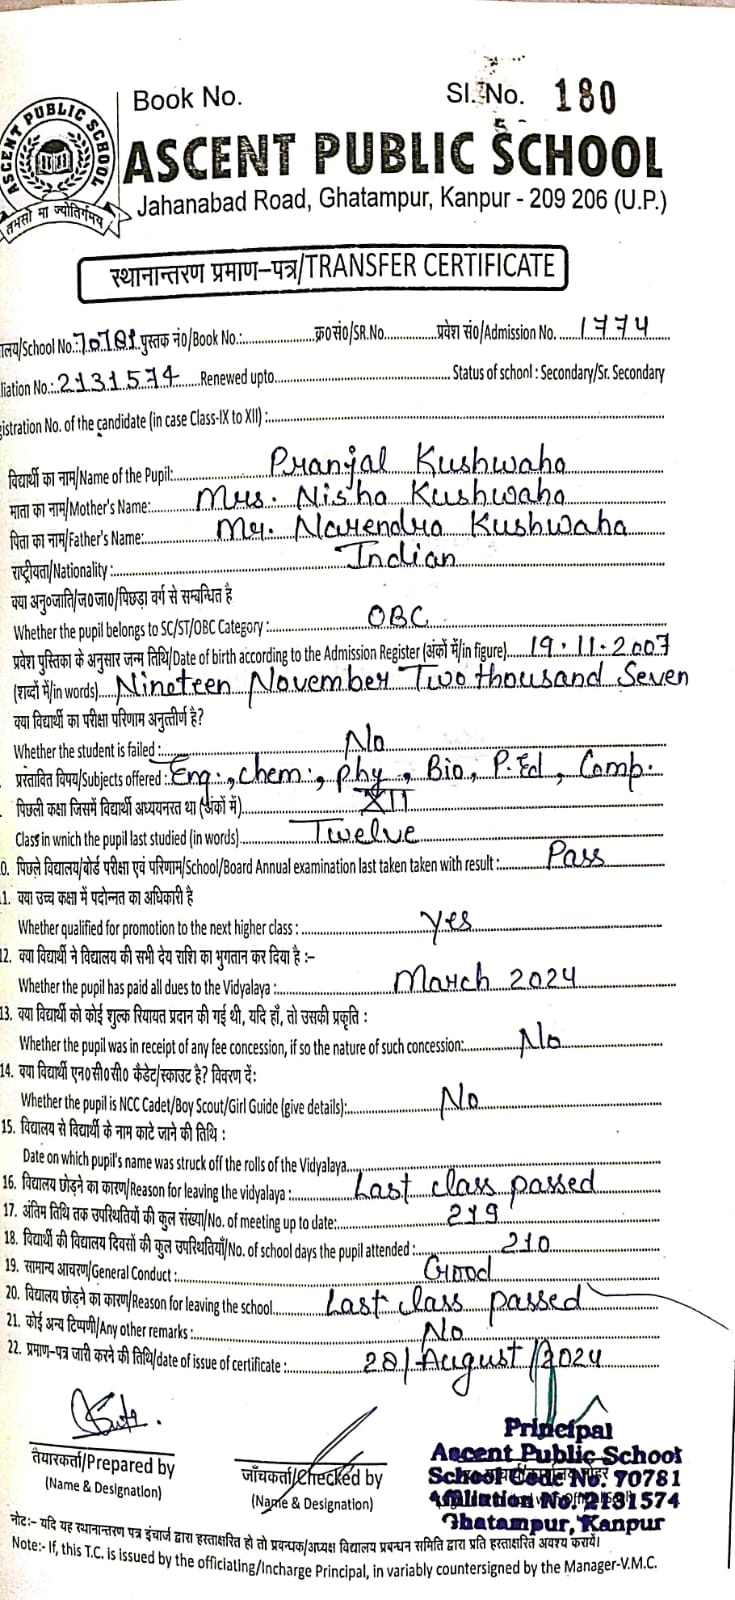 Book No.
Sl. No. 180
ASCENT PUBLIC SCHOOL
तमसो मा ज्योतिर्गमय
ASCENT PUBLIC SCHOOL
Jahanabad Road, Ghatampur, Kanpur - 209 206 (U.P.)
स्थानान्तरण प्रमाण-पत्र/TRANSFER CERTIFICATE
लय/School No.: 70781 पुस्तक नं०/Book No.: क्र०सं०/SR.No. प्रवेश सं०/Admission No. 1774
liation No.: 2131574 Renewed upto Status of school : Secondary/Sr. Secondary
gistration No. of the candidate (in case Class-IX to XII) :
विद्यार्थी का नाम/Name of the Pupil: Pranjal Kushwaha
माता का नाम/Mother's Name: Mrs. Nisha Kushwaha
पिता का नाम/Father's Name: Mr. Narendra Kushwaha
राष्ट्रीयता/Nationality : Indian
क्या अनु०जाति/ज०जा०/पिछड़ा वर्ग से सम्बन्धित है
Whether the pupil belongs to SC/ST/OBC Category : OBC
प्रवेश पुस्तिका के अनुसार जन्म तिथि/Date of birth according to the Admission Register (अंकों में/in figure) 19.11.2007
(शब्दों में/in words) Nineteen November Two thousand Seven
क्या विद्यार्थी का परीक्षा परिणाम अनुत्तीर्ण है?
Whether the student is failed : No
प्रस्तावित विषय/Subjects offered : Eng., chem., phy, Bio, P.Ed, Comp.
पिछली कक्षा जिसमें विद्यार्थी अध्ययनरत था (अंकों में) XII
Class in wnich the pupil last studied (in words) Twelve
0. पिछले विद्यालय/बोर्ड परीक्षा एवं परिणाम/School/Board Annual examination last taken taken with result : Pass
1. क्या उच्च कक्षा में पदोन्नत का अधिकारी है
Whether qualified for promotion to the next higher class : yes
2. क्या विद्यार्थी ने विद्यालय की सभी देय राशि का भुगतान कर दिया है :-
Whether the pupil has paid all dues to the Vidyalaya : March 2024
13. क्या विद्यार्थी को कोई शुल्क रियायत प्रदान की गई थी, यदि हाँ, तो उसकी प्रकृति :
Whether the pupil was in receipt of any fee concession, if so the nature of such concession: No
14. क्या विद्यार्थी एन०सी०सी० कैडेट/स्काउट है? विवरण दें:
Whether the pupil is NCC Cadet/Boy Scout/Girl Guide (give details): No
15. विद्यालय से विद्यार्थी के नाम काटे जाने की तिथि :
Date on which pupil's name was struck off the rolls of the Vidyalaya
16. विद्यालय छोड़ने का कारण/Reason for leaving the vidyalaya : Last class passed
17. अंतिम तिथि तक उपस्थितियों की कुल संख्या/No. of meeting up to date: 219
18. विद्यार्थी की विद्यालय दिवसों की कुल उपस्थितियाँ/No. of school days the pupil attended : 210
19. सामान्य आचरण/General Conduct : Good
20. विद्यालय छोड़ने का कारण/Reason for leaving the school Last class passed
21. कोई अन्य टिप्पणी/Any other remarks : No
22. प्रमाण-पत्र जारी करने की तिथि/date of issue of certificate : 28/August/2024
तैयारकर्ता/Prepared by
(Name & Designation)
जाँचकर्ता/Checked by
(Name & Designation)
Principal
Ascent Public School
School Code No. 70781
Affiliation No. 2131574
Ghatampur, Kanpur
नोट:- यदि यह स्थानान्तरण पत्र इंचार्ज द्वारा हस्ताक्षरित हो तो प्रबन्धक/अध्यक्ष विद्यालय प्रबन्धन समिति द्वारा प्रति हस्ताक्षरित अवश्य करायें।
Note:- If, this T.C. is issued by the officiating/Incharge Principal, in variably countersigned by the Manager-V.M.C.